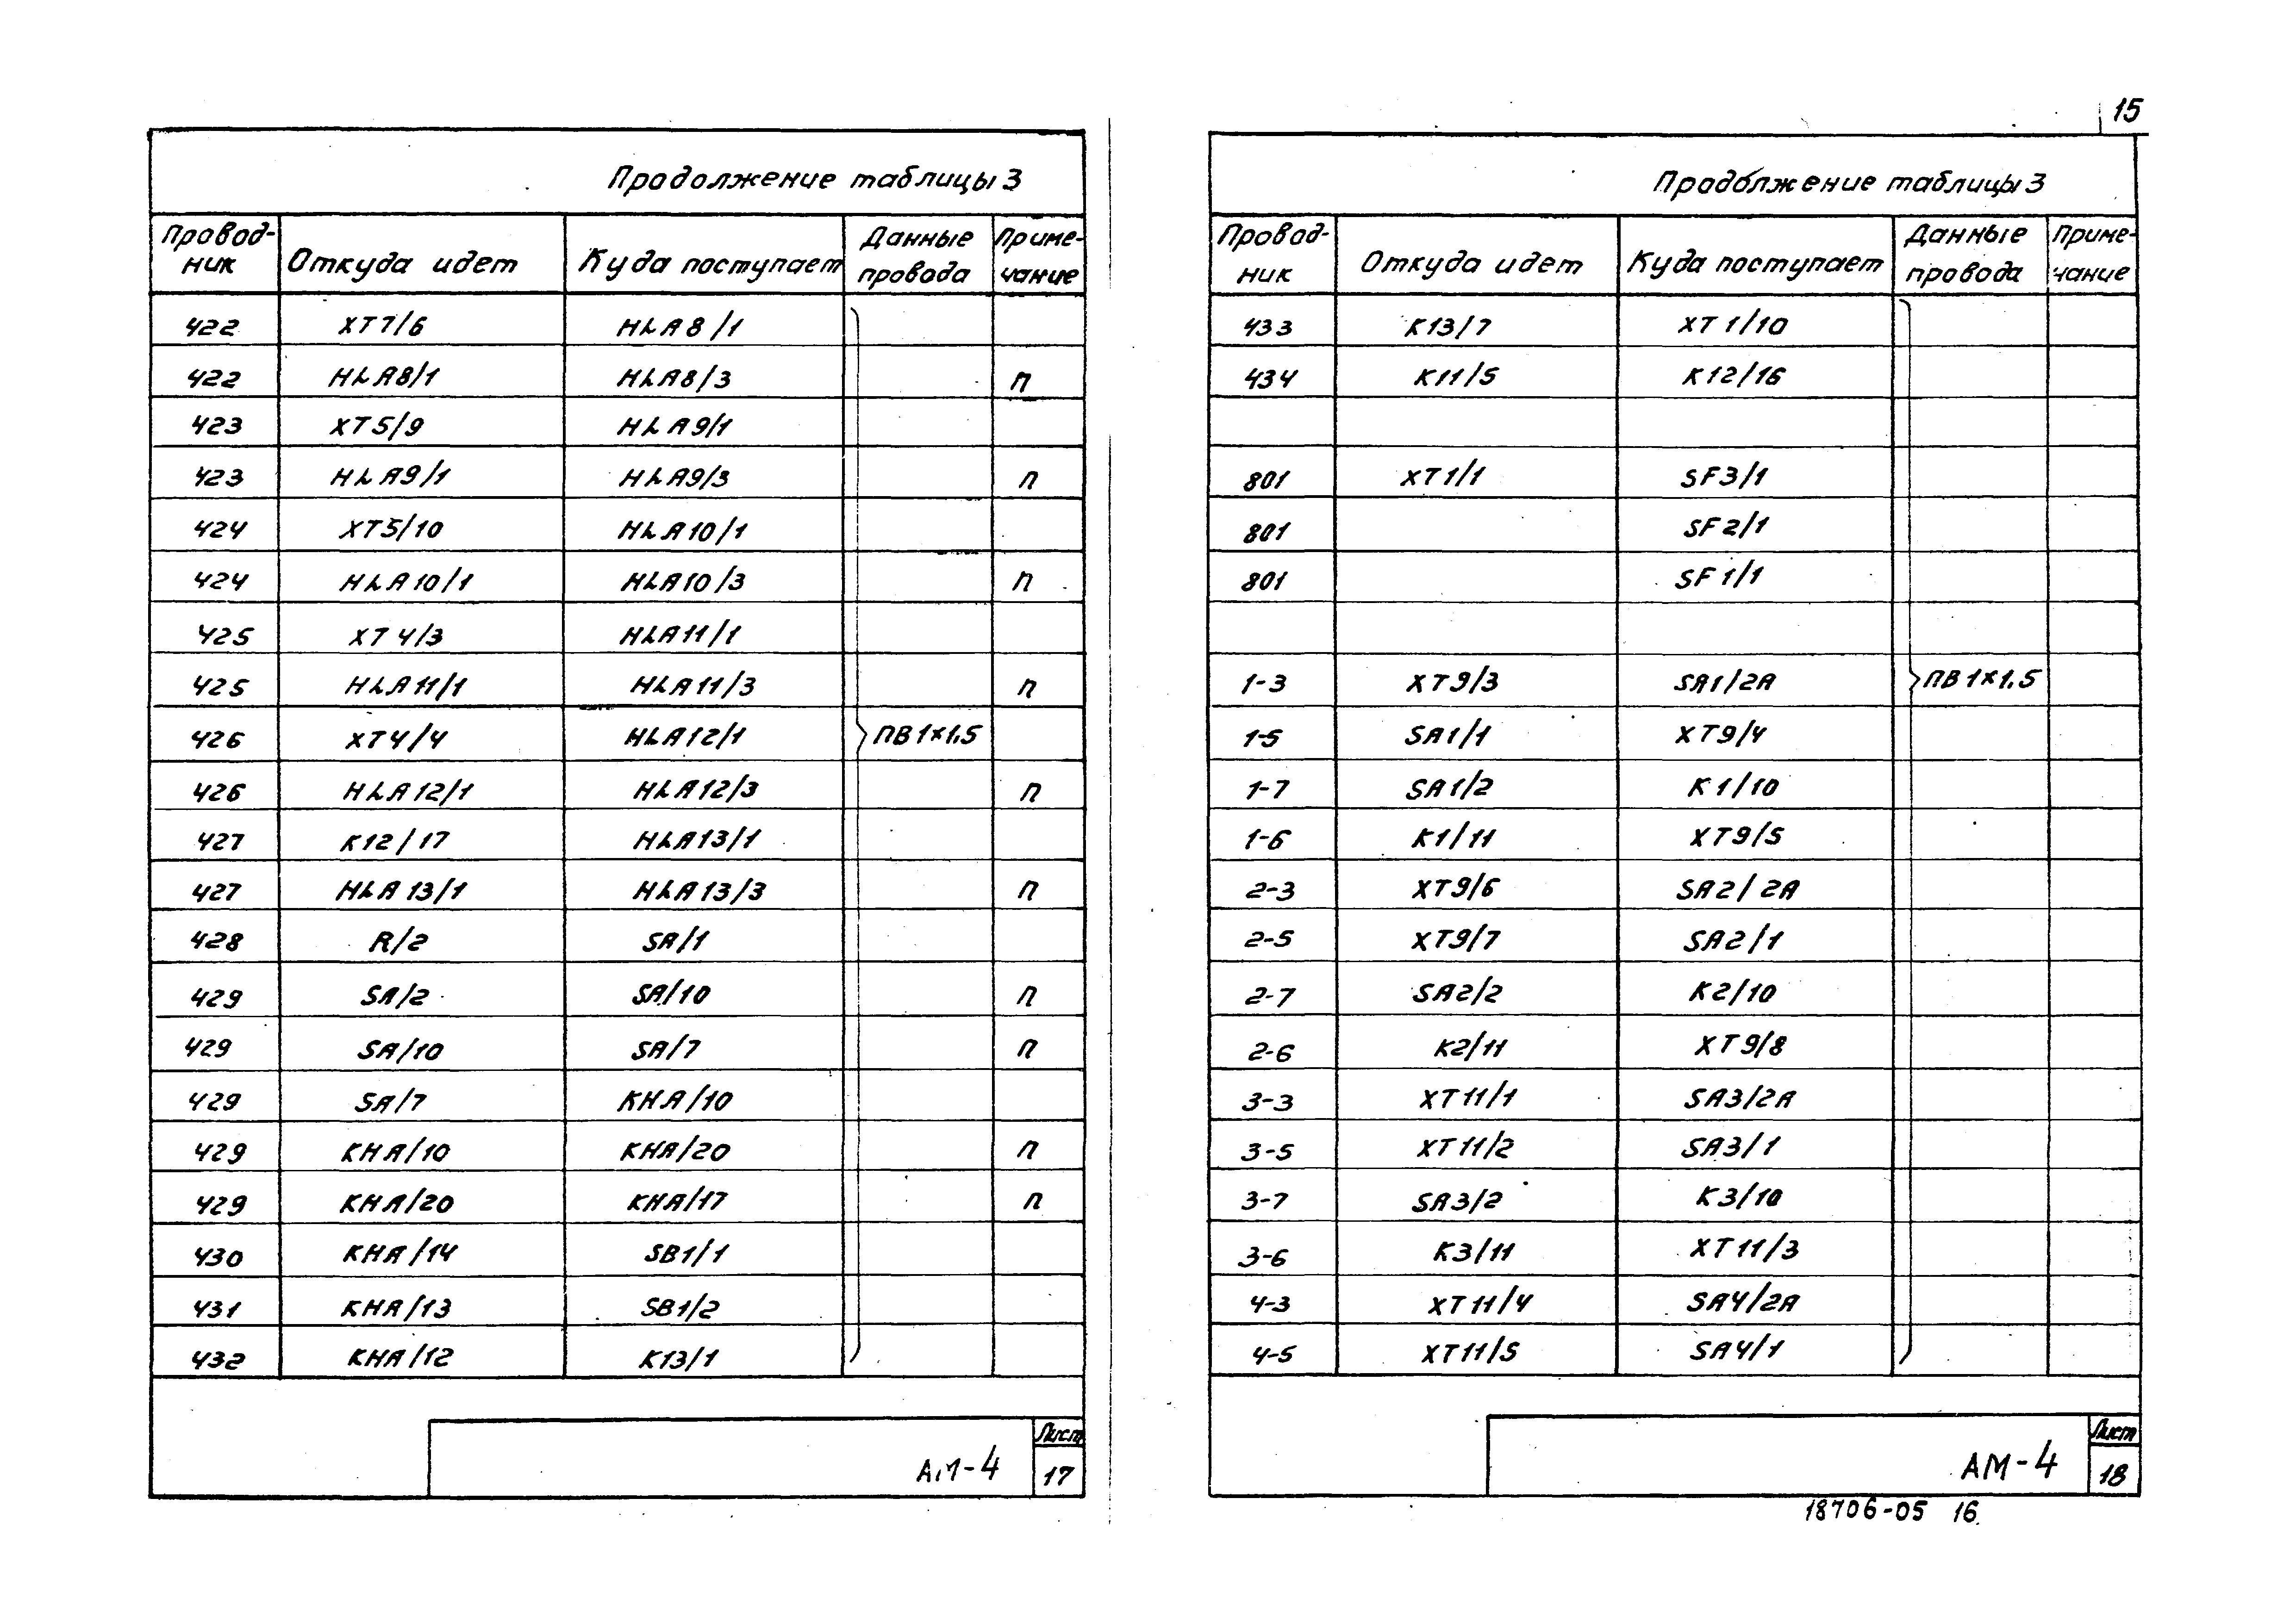 15
Продолжение таблицы 3
Провод-ник Откуда идет Куда поступает Данные провода Приме-чание
422 XT7/6 HLA8/1
422 HLA8/1 HLA8/3 п
423 XT5/9 HLA9/1
423 HLA9/1 HLA9/3 п
424 XT5/10 HLA10/1
424 HLA10/1 HLA10/3 п
425 XT4/3 HLA11/1
425 HLA11/1 HLA11/3 п
426 XT4/4 HLA12/1 ПВ1×1,5
426 HLA12/1 HLA12/3 п
427 K12/17 HLA13/1
427 HLA13/1 HLA13/3 п
428 R/2 SA/1
429 SA/2 SA/10 п
429 SA/10 SA/7 п
429 SA/7 KHA/10
429 KHA/10 KHA/20 п
429 KHA/20 KHA/17 п
430 KHA/14 SB1/1
431 KHA/13 SB1/2
432 KHA/12 K13/1
АМ-4
Лист
17
Продолжение таблицы 3
Провод-ник Откуда идет Куда поступает Данные провода Приме-чание
433 K13/7 XT1/10
434 K11/5 K12/16
801 XT1/1 SF3/1
801 SF2/1
801 SF1/1
1-3 XT9/3 SA1/2A ПВ1×1,5
1-5 SA1/1 XT9/4
1-7 SA1/2 K1/10
1-6 K1/11 XT9/5
2-3 XT9/6 SA2/2A
2-5 XT9/7 SA2/1
2-7 SA2/2 K2/10
2-6 K2/11 XT9/8
3-3 XT11/1 SA3/2A
3-5 XT11/2 SA3/1
3-7 SA3/2 K3/10
3-6 K3/11 XT11/3
4-3 XT11/4 SA4/2A
4-5 XT11/5 SA4/1
АМ-4
Лист
18
18706-05 16